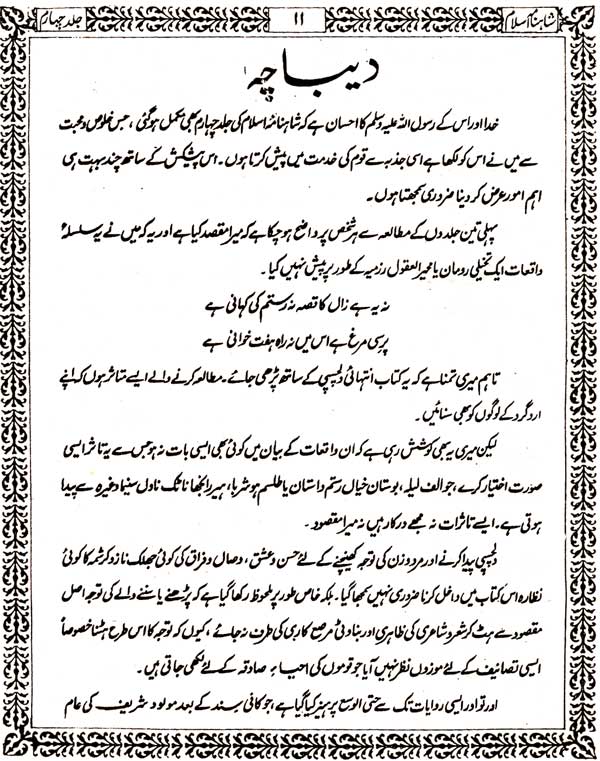 شاہنامۂ اسلام ۱۱ جلد چہارم
دیباچہ
خدا اور اس کے رسول اللہ علیہ وسلم کا احسان ہے کہ شاہنامۂ اسلام کی جلد چہارم بھی مکمل ہو گئی ، جس خلوص و محبت
سے میں نے اس کو لکھا ہے اسی جذبہ سے قوم کی خدمت میں پیش کرتا ہوں۔ اس پیشکش کے ساتھ چند بہت ہی
اہم امور عرض کر دینا ضروری سمجھتا ہوں۔
پہلی تین جلدوں کے مطالعہ سے ہر شخص پر واضح ہو چکا ہے کہ میرا مقصد کیا ہے اور یہ کہ میں نے یہ سلسلۂ
واقعات ایک تخیلی رومان یا محیر العقول رزمیہ کے طور پر پیش نہیں کیا۔
نہ یہ ہے زال کا قصہ نہ رستم کی کہانی ہے
پر سی مرغ ہے اس میں نہ راہ ہفت خوانی ہے
تاہم میری تمنا ہے کہ یہ کتاب انتہائی دلچسپی کے ساتھ پڑھی جائے۔ مطالعہ کرنے والے ایسے متاثر ہوں کہ اپنے
اردگرد کے لوگوں کو بھی سنائیں۔
لیکن میری یہ بھی کوشش رہی ہے کہ ان واقعات کے بیان میں کوئی بھی ایسی بات نہ ہو جس سے یہ تاثر ایسی
صورت اختیار کرے، جو الف لیلہ، بوستان خیال رستم داستان یا طلسم ہوشربا، ہیر رانجھا ناٹک ناول سنیما وغیرہ سے پیدا
ہوتی ہے۔ ایسے تاثرات نہ مجھے درکار ہیں نہ میرا مقصود۔
دلچسپی پیدا کرنے اور مرد و زن کی توجہ کھینچنے کے لئے حسن و عشق، وصال و فراق کی کوئی جھلک ناز و کرشمہ کا کوئی
نظارہ اس کتاب میں داخل کرنا ضروری نہیں سمجھا گیا۔ بلکہ خاص طور پر ملحوظ رکھا گیا ہے کہ پڑھنے یا سننے والے کی توجہ اصل
مقصود سے ہٹ کر شعر و شاعری کی ظاہری اور بناوٹی مرصع کاری کی طرف نہ جائے ، کیوں کہ توجہ کا اس طرح ہٹنا خصوصاً
ایسی تصانیف کے لئے موزوں نظر نہیں آیا جو قوموں کی احیاء صادقہ کے لئے لکھی جاتی ہیں۔
اور تو اور ایسی روایات تک سے حتی الوسع پرہیز کیا گیا ہے ، جو کافی سند کے بعد مولود شریف کی عام